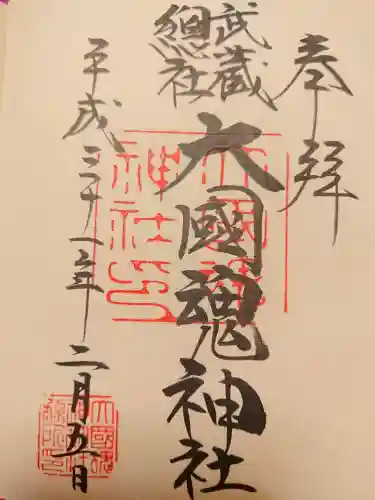 奉拝
武蔵
總社
大國魂神社
平成三十一年二月五日
大國魂
神社印